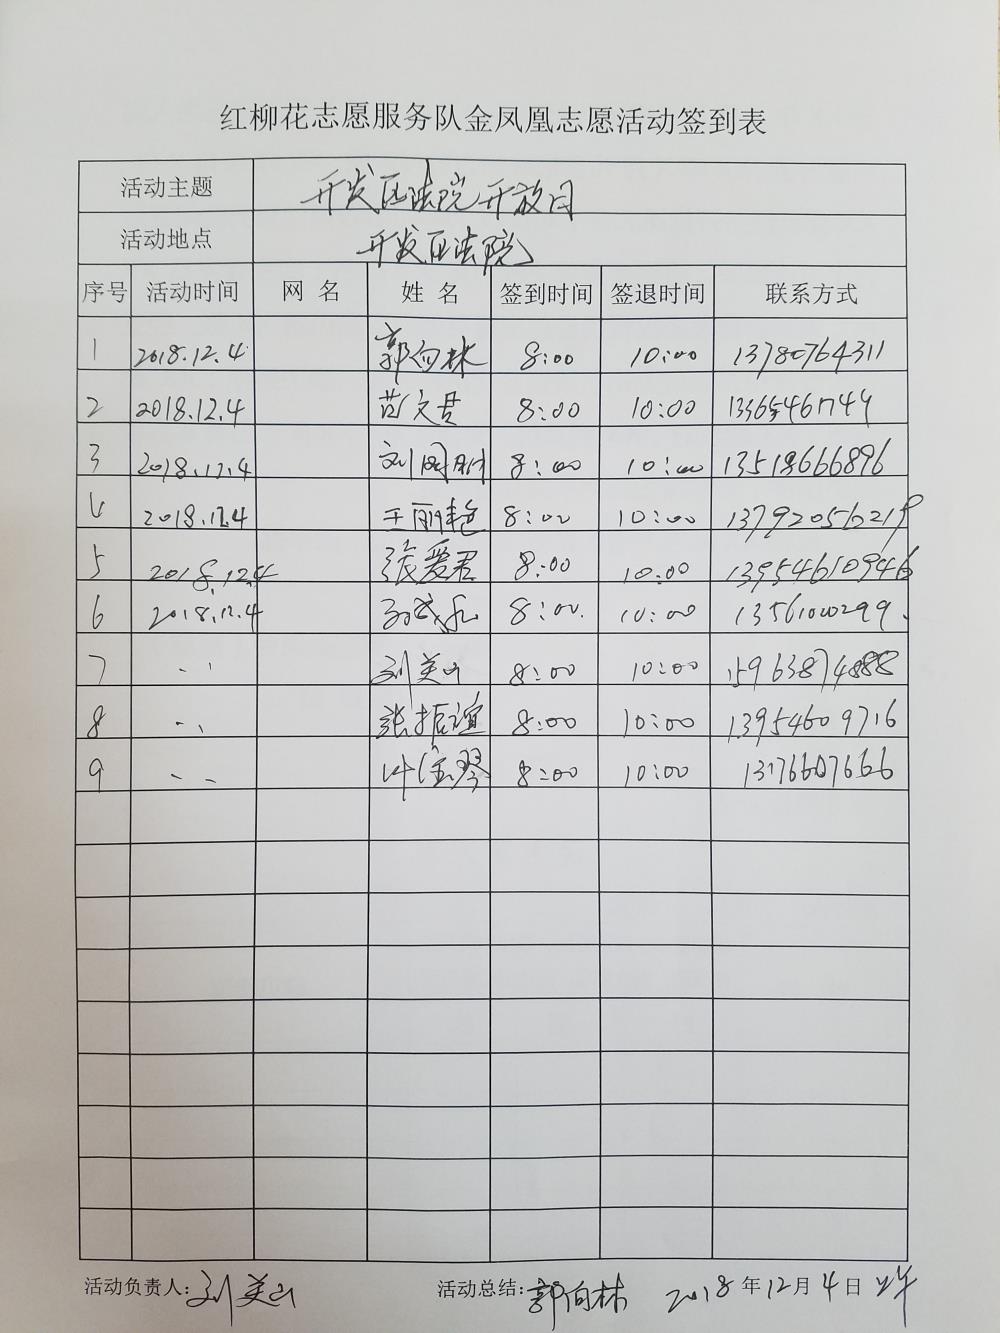 红柳花志愿服务队金凤凰志愿活动签到表
活动主题 开发区法院开放日
活动地点 开发区法院
序号 活动时间 网 名 姓 名 签到时间 签退时间 联系方式
1 2018.12.4 郭向林 8:00 10:00 13780764311
2 2018.12.4 范文君 8:00 10:00
3 2018.12.4 8:00 10:00 13518666896
4 2018.12.4 王丽艳 8:00 10:00 13792056219
5 2018.12.4 张爱君 8:00 10:00 13954610946
6 2018.12.4 8:00 10:00 13561000299
7 刘美山 8:00 10:00 15963874888
8 张振谊 8:00 10:00 13954609716
9 8:00 10:00 13176607666
活动负责人: 刘美山 活动总结: 郭向林 2018年12月4日 上午